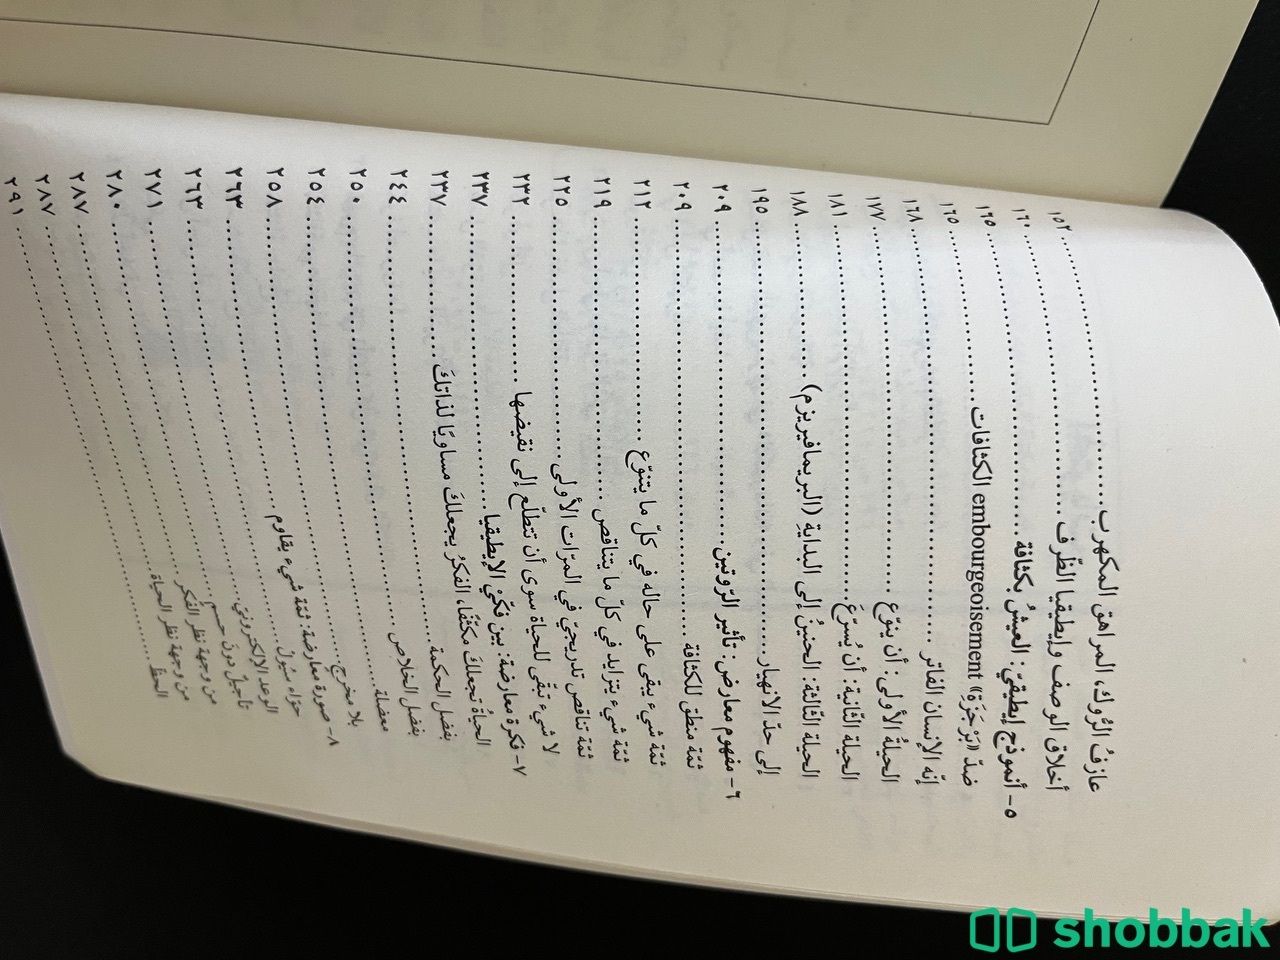 عازفُ الرّوك، المراهق المكهرب ........ ١٥٢
أخلاق الوصف وإيطيقيا الظّرف ........ ١٦٠
٥- أنموذج إيطيقيّ: العيشُ بكثافة ........ ١٦٥
ضدّ «بَرْجَزَةِ» embourgeoisement الكثافات ........ ١٦٥
إنّه الإنسان الفاتر ........ ١٦٨
الحيلةُ الأولى: أن ينوّع ........ ١٧٧
الحيلة الثّانية: أن يُسرّعَ ........ ١٨١
الحيلة الثّالثة: الحنينُ إلى البدايةِ (البريمافيريزم) ........ ١٨٨
إلى حدّ الانهيار ........ ١٩٥
٦- مفهوم معارض: تأثير الرّوتين ........ ٢٠٩
ثمّة منطق للكثافة ........ ٢٠٩
ثمّة شيء يبقى على حاله في كلّ ما يتنوّع ........ ٢١٢
ثمّة شيء يتزايد في كلّ ما يتناقص ........ ٢١٩
ثمّة تناقص تدريجيّ في المرّات الأولى ........ ٢٢٥
لا شيء تبقّى للحياة سوى أن تتطلّع إلى نقيضها ........ ٢٣٢
٧- فكرة معارضة: بين فكّيْ الإيطيقيا ........ ٢٣٧
الحياةُ تجعلكَ مكثّفًا، الفكرُ يجعلكَ مساويًا لذاتكَ ........ ٢٣٧
بفضل الحكمة ........ ٢٤٤
بفضل الخلاص ........ ٢٥٠
معضلة ........ ٢٥٤
بلا مخرج ........ ٢٥٨
٨- صورة معارضة: ثمّة شيء يقاوم ........ ٢٦٣
حوّاء سيُولْ ........ ٢٦٣
الوعد الإلكترونيّ ........ ٢٧١
تأجيلٌ دونَ حسم ........ ٢٨٠
من وجهة نظر الفكر ........ ٢٨٧
من وجهة نظر الحياة ........ ٢٨٧
الحظّ ........ ٢٩١
shobbak